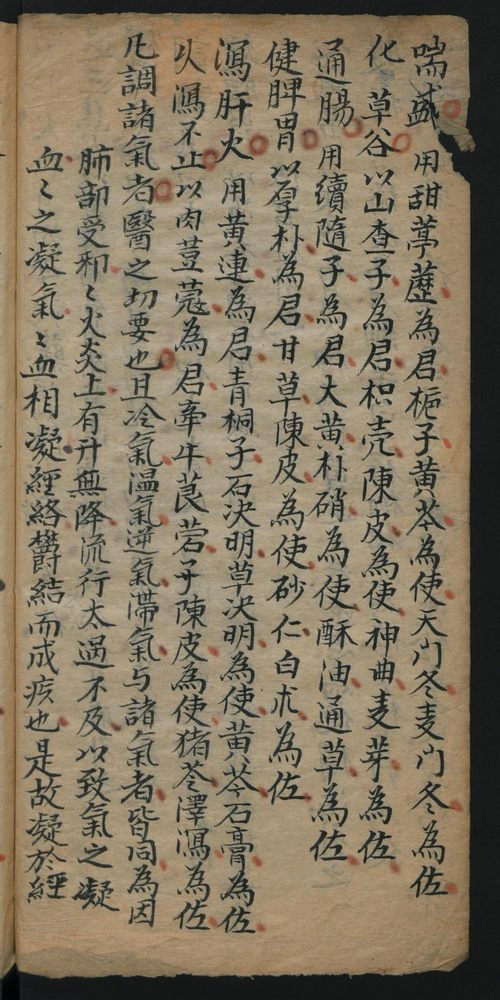 喘盛 用甜葶藶為君梔子黃芩為使天门冬麦门冬為佐
化草谷以山查子為君枳壳陳皮為使神曲麦芽為佐
通腸 用續隨子為君大黄朴硝為使酥油通草為佐
健脾胃以厚朴為君甘草陳皮為使砂仁白朮為佐
瀉肝火 用黄連為君青桐子石决明草决明為使黄芩石膏為佐
久瀉不止以肉荳蔻為君牽牛莨菪子陳皮為使猪苓澤瀉為佐
凡調諸氣者醫之切要也且冷氣温氣逆氣滯氣与諸氣者皆同為因
肺部受邪〻火炎上有升無降流行太過不及以致氣之凝
血〻之凝氣〻血相凝經絡欝結而成疾也是故凝於經